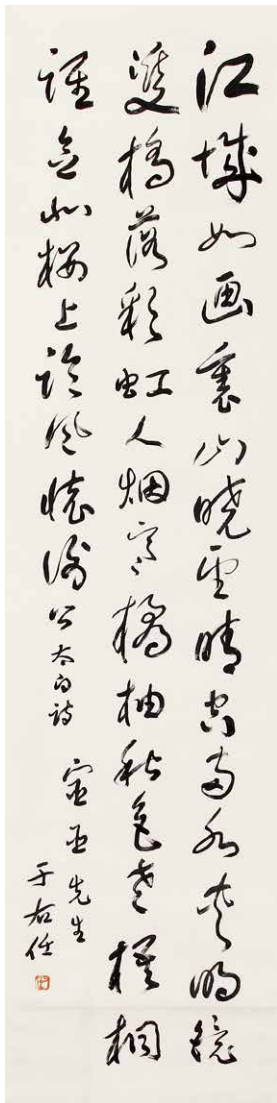 江城如画裏山曉望晴空兩水夾明鏡
雙橋落彩虹人烟寒橘柚秋色老梧桐
誰念北樓上臨風懷謝公太白詩
先生
于右任